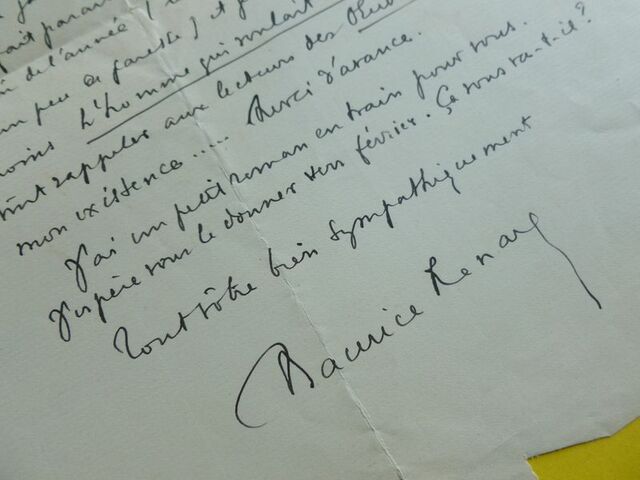 fait paraî
de l'année (
un peu de paresse) et j
moins L'homme qui voulait
rappeler aux lecteurs des
mon existence..... Merci d'avance.
J'ai un petit roman en train pour vous.
J'espère vous le donner vers février. Ça vous va-t-il?
Tout vôtre bien sympathiquement
Maurice Renard